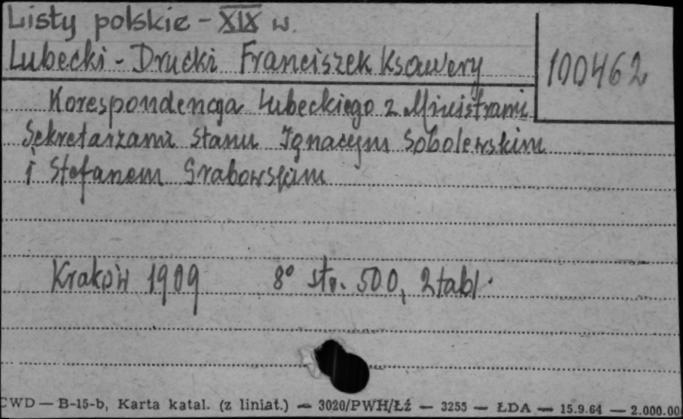 Listy polskie - XIX w.
Lubecki - Drucki Franciszek Ksawery
100462
Korespondencja Lubeckiego z Ministrami
Sekretarzami Stanu Ignacym Sobolewskim
i Stefanem Grabowskim
Kraków 1909 8° str. 500, 2 tabl.
CWD — B-15-b, Karta katal. (z liniat.) — 3020/PWH/Łź — 3255 — ŁDA — 15.9.64 — 2.000.00